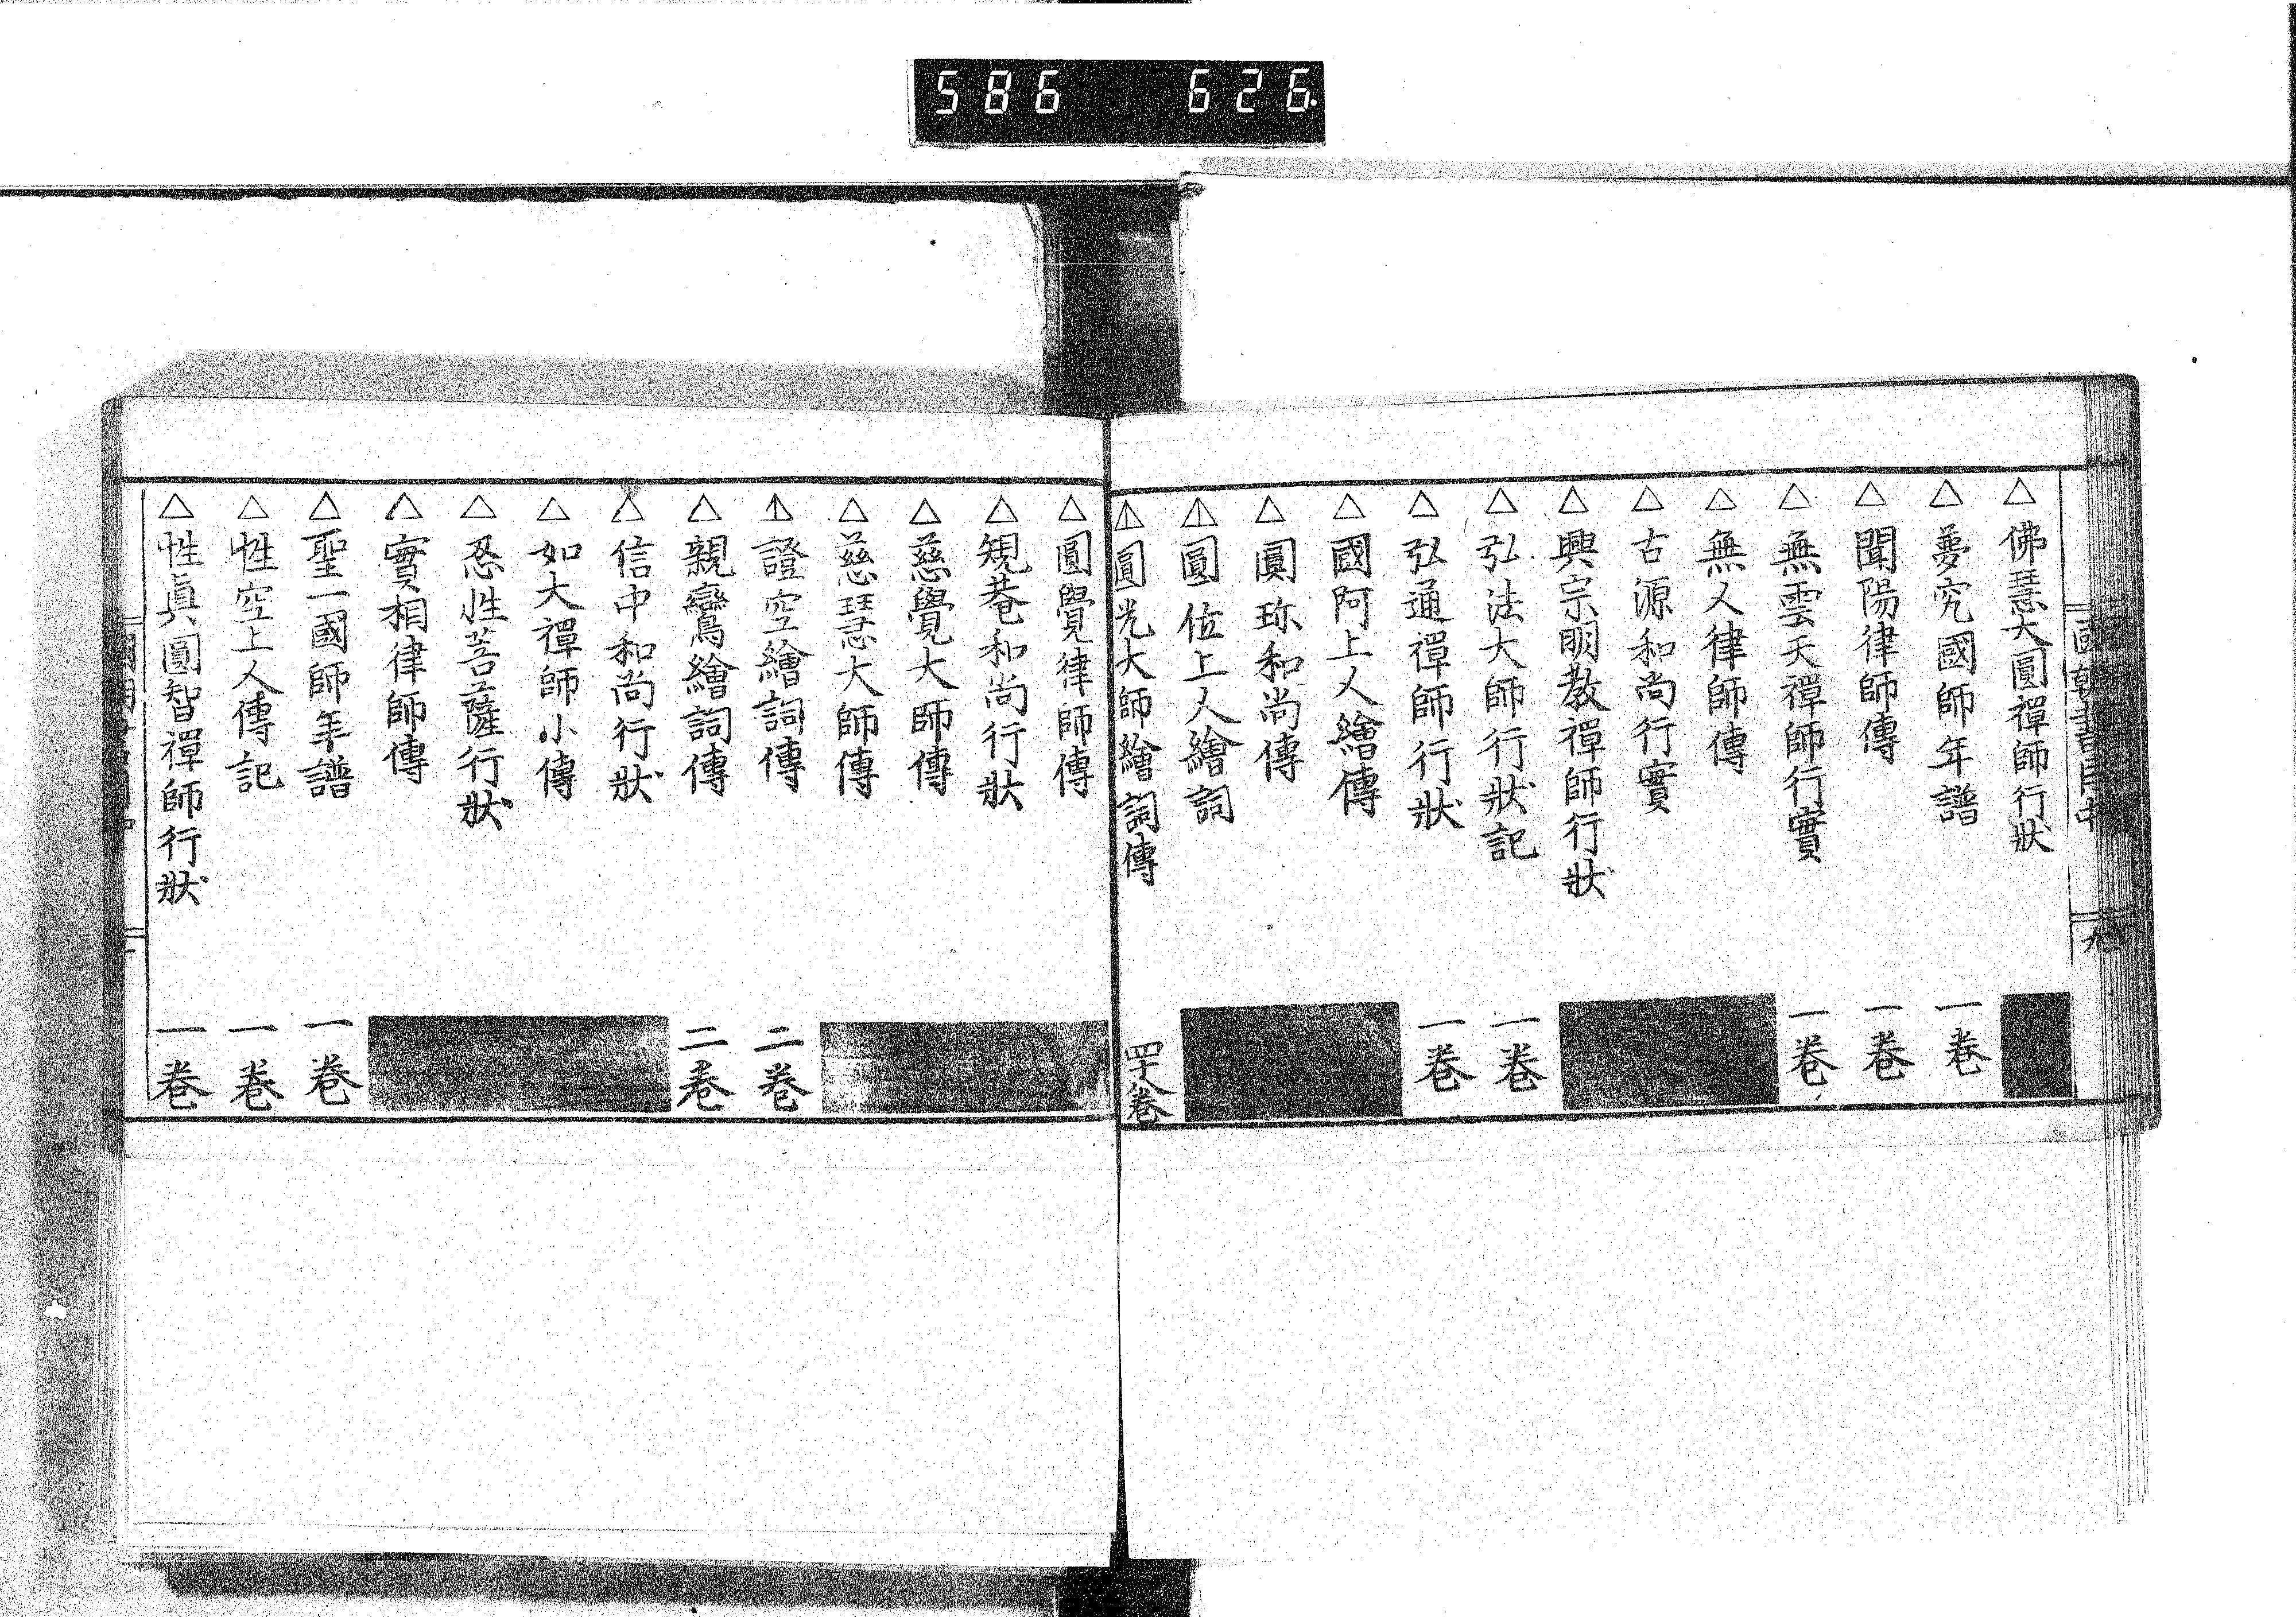 586 626.
國朝書目中
△佛慧大圓禪師行狀
△夢窓國師年譜 一卷
△聞陽律師傳 一卷
△無雲天禪師行實 一卷
△無人律師傳
△古源和尚行實
△興宗明教禪師行狀
△弘法大師行狀記 一卷
△弘通禪師行狀 一卷
△國阿上人繪傳
△圓珎和尚傳
△圓位上人繪詞
△圓光大師繪詞傳 四十八卷
△圓覺律師傳
△規菴和尚行狀
△慈覺大師傳
△慈慧大師傳
△證空繪詞傳 二卷
△親鸞繪詞傳 二卷
△信中和尚行狀
△如大禪師小傳
△忍性菩薩行狀
△實相律師傳
△聖一國師年譜 一卷
△性空上人傳記 一卷
△性眞圓智禪師行狀 一卷